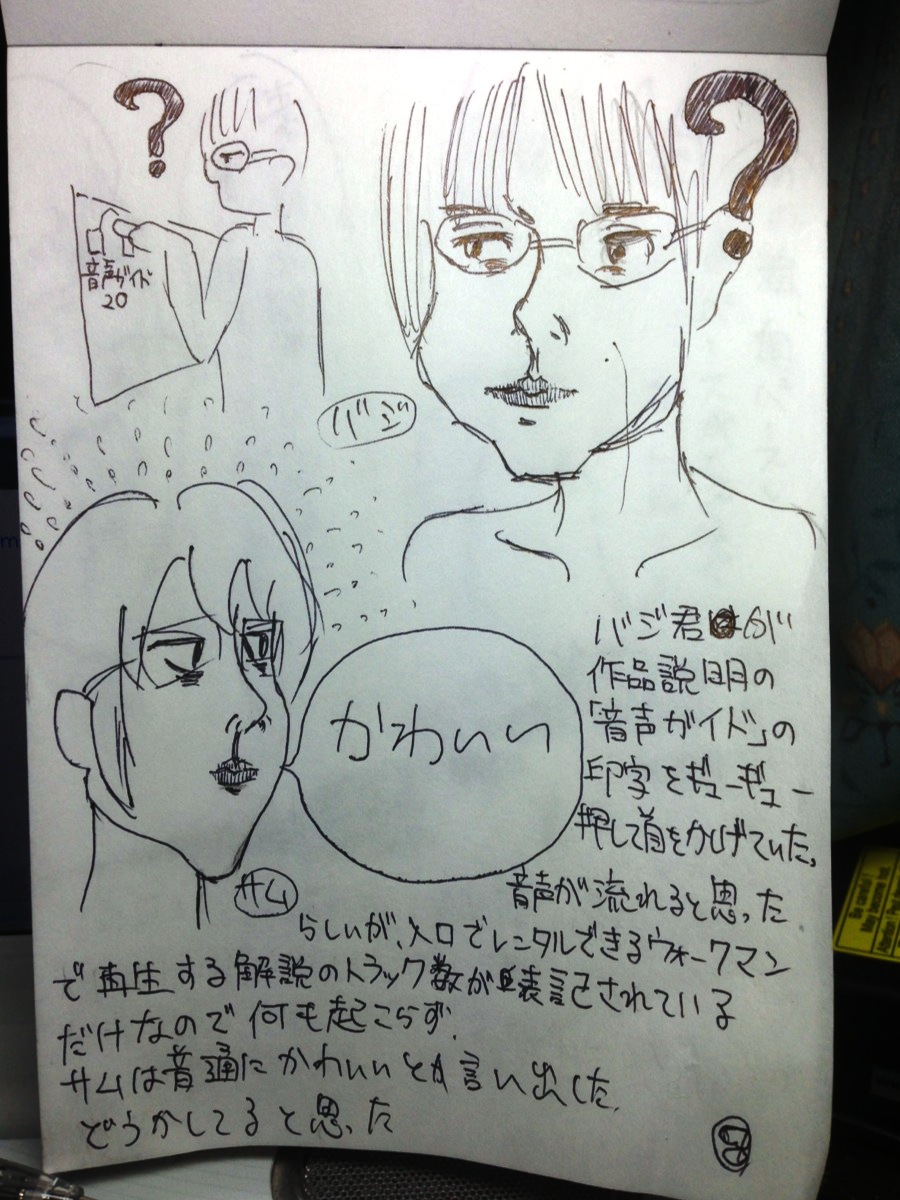 ?
?
音声ガイド
20
バジ
かわいい
サム
バジ君が
作品説明の
「音声ガイド」の
印字をギューギュー
押して首をかしげていた。
音声が流れると思った
らしいが、入口でレンタルできるウォークマン
で再生する解説のトラック数が表記されている
だけなので何も起こらず。
サムは普通にかわいいとか言い出した。
どうかしてると思った
Be careful!